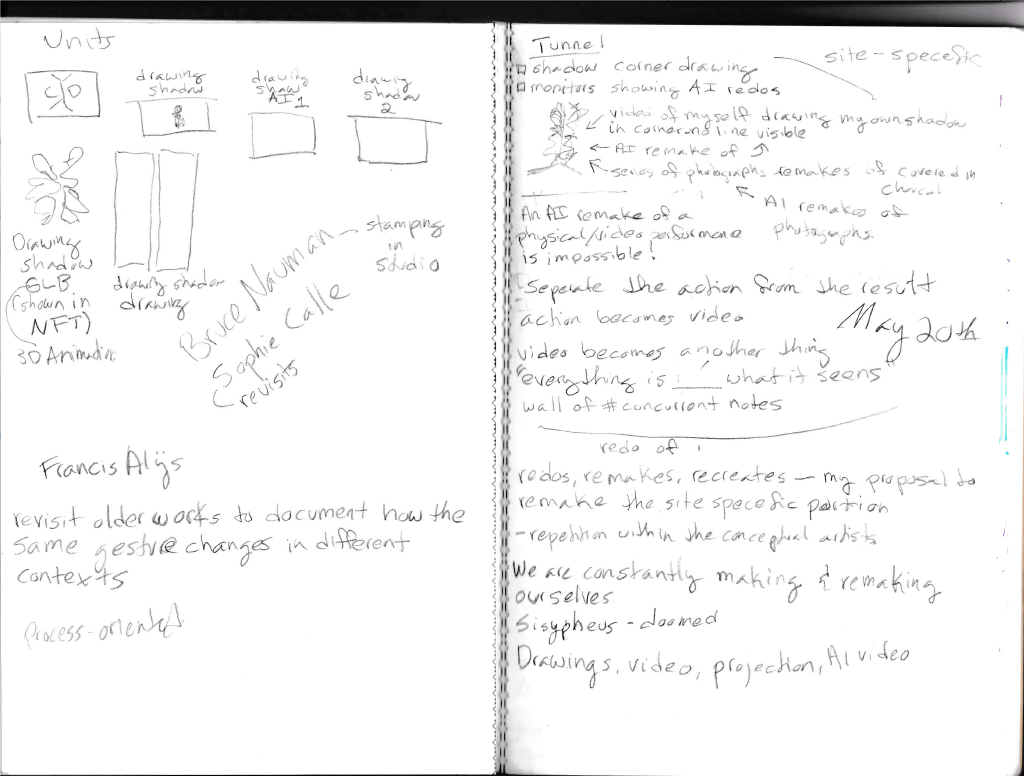 Units
C D
drawing
shadow
drawing
shadow
AI 1
drawing
shadow
2
Drawing
shadow
GLB
(shown in
NFT)
3D Animation
drawing shadow
drawing
Bruce Nauman — stamping
in
studio
Sophie Calle
revisits
Francis Alÿs
revisit older works to document how the
same gesture changes in different
contexts
process-oriented
Tunnel
site-specefic
shadow corner drawing
monitors showing AI redos
video of myself drawing my own shadow
in corner and line visible
AI remake of
series of photographs remakes of covered in
charcol
AI remakes of
photographs.
An AI remake of a
physical/video performance
is impossible!
Seperate the action from the result
action becomes video
May 20th
video becomes another thing
"everything is ____ what it seems"
wall of # concurrent notes
redo of
redos, remakes, recreates — my proposal to
remake the site specefic portion
- repetition within the conceptual artists
We are constantly making & remaking
ourselves
Sisypheus - doomed
Drawings, video, projection, AI video